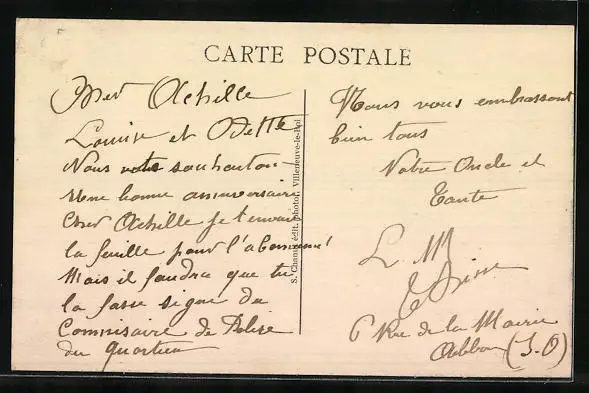 CARTE POSTALE
Cher Achille
Louise et Odette
Nous vous souhaiton
une bonne anniversaire
Cher Achille je t'envoie
la feuille pour l'abonnement
Mais il faudra que tu
la fasse signe du
Commisaire de Polise
du Quartier
S. Chanut, édit. photot. Villeneuve-le-Roi
Nous vous embrassont
bien tous
Votre Oncle et
Tante
L. M
6 Rue de la Mairie
Ablon (S. O)